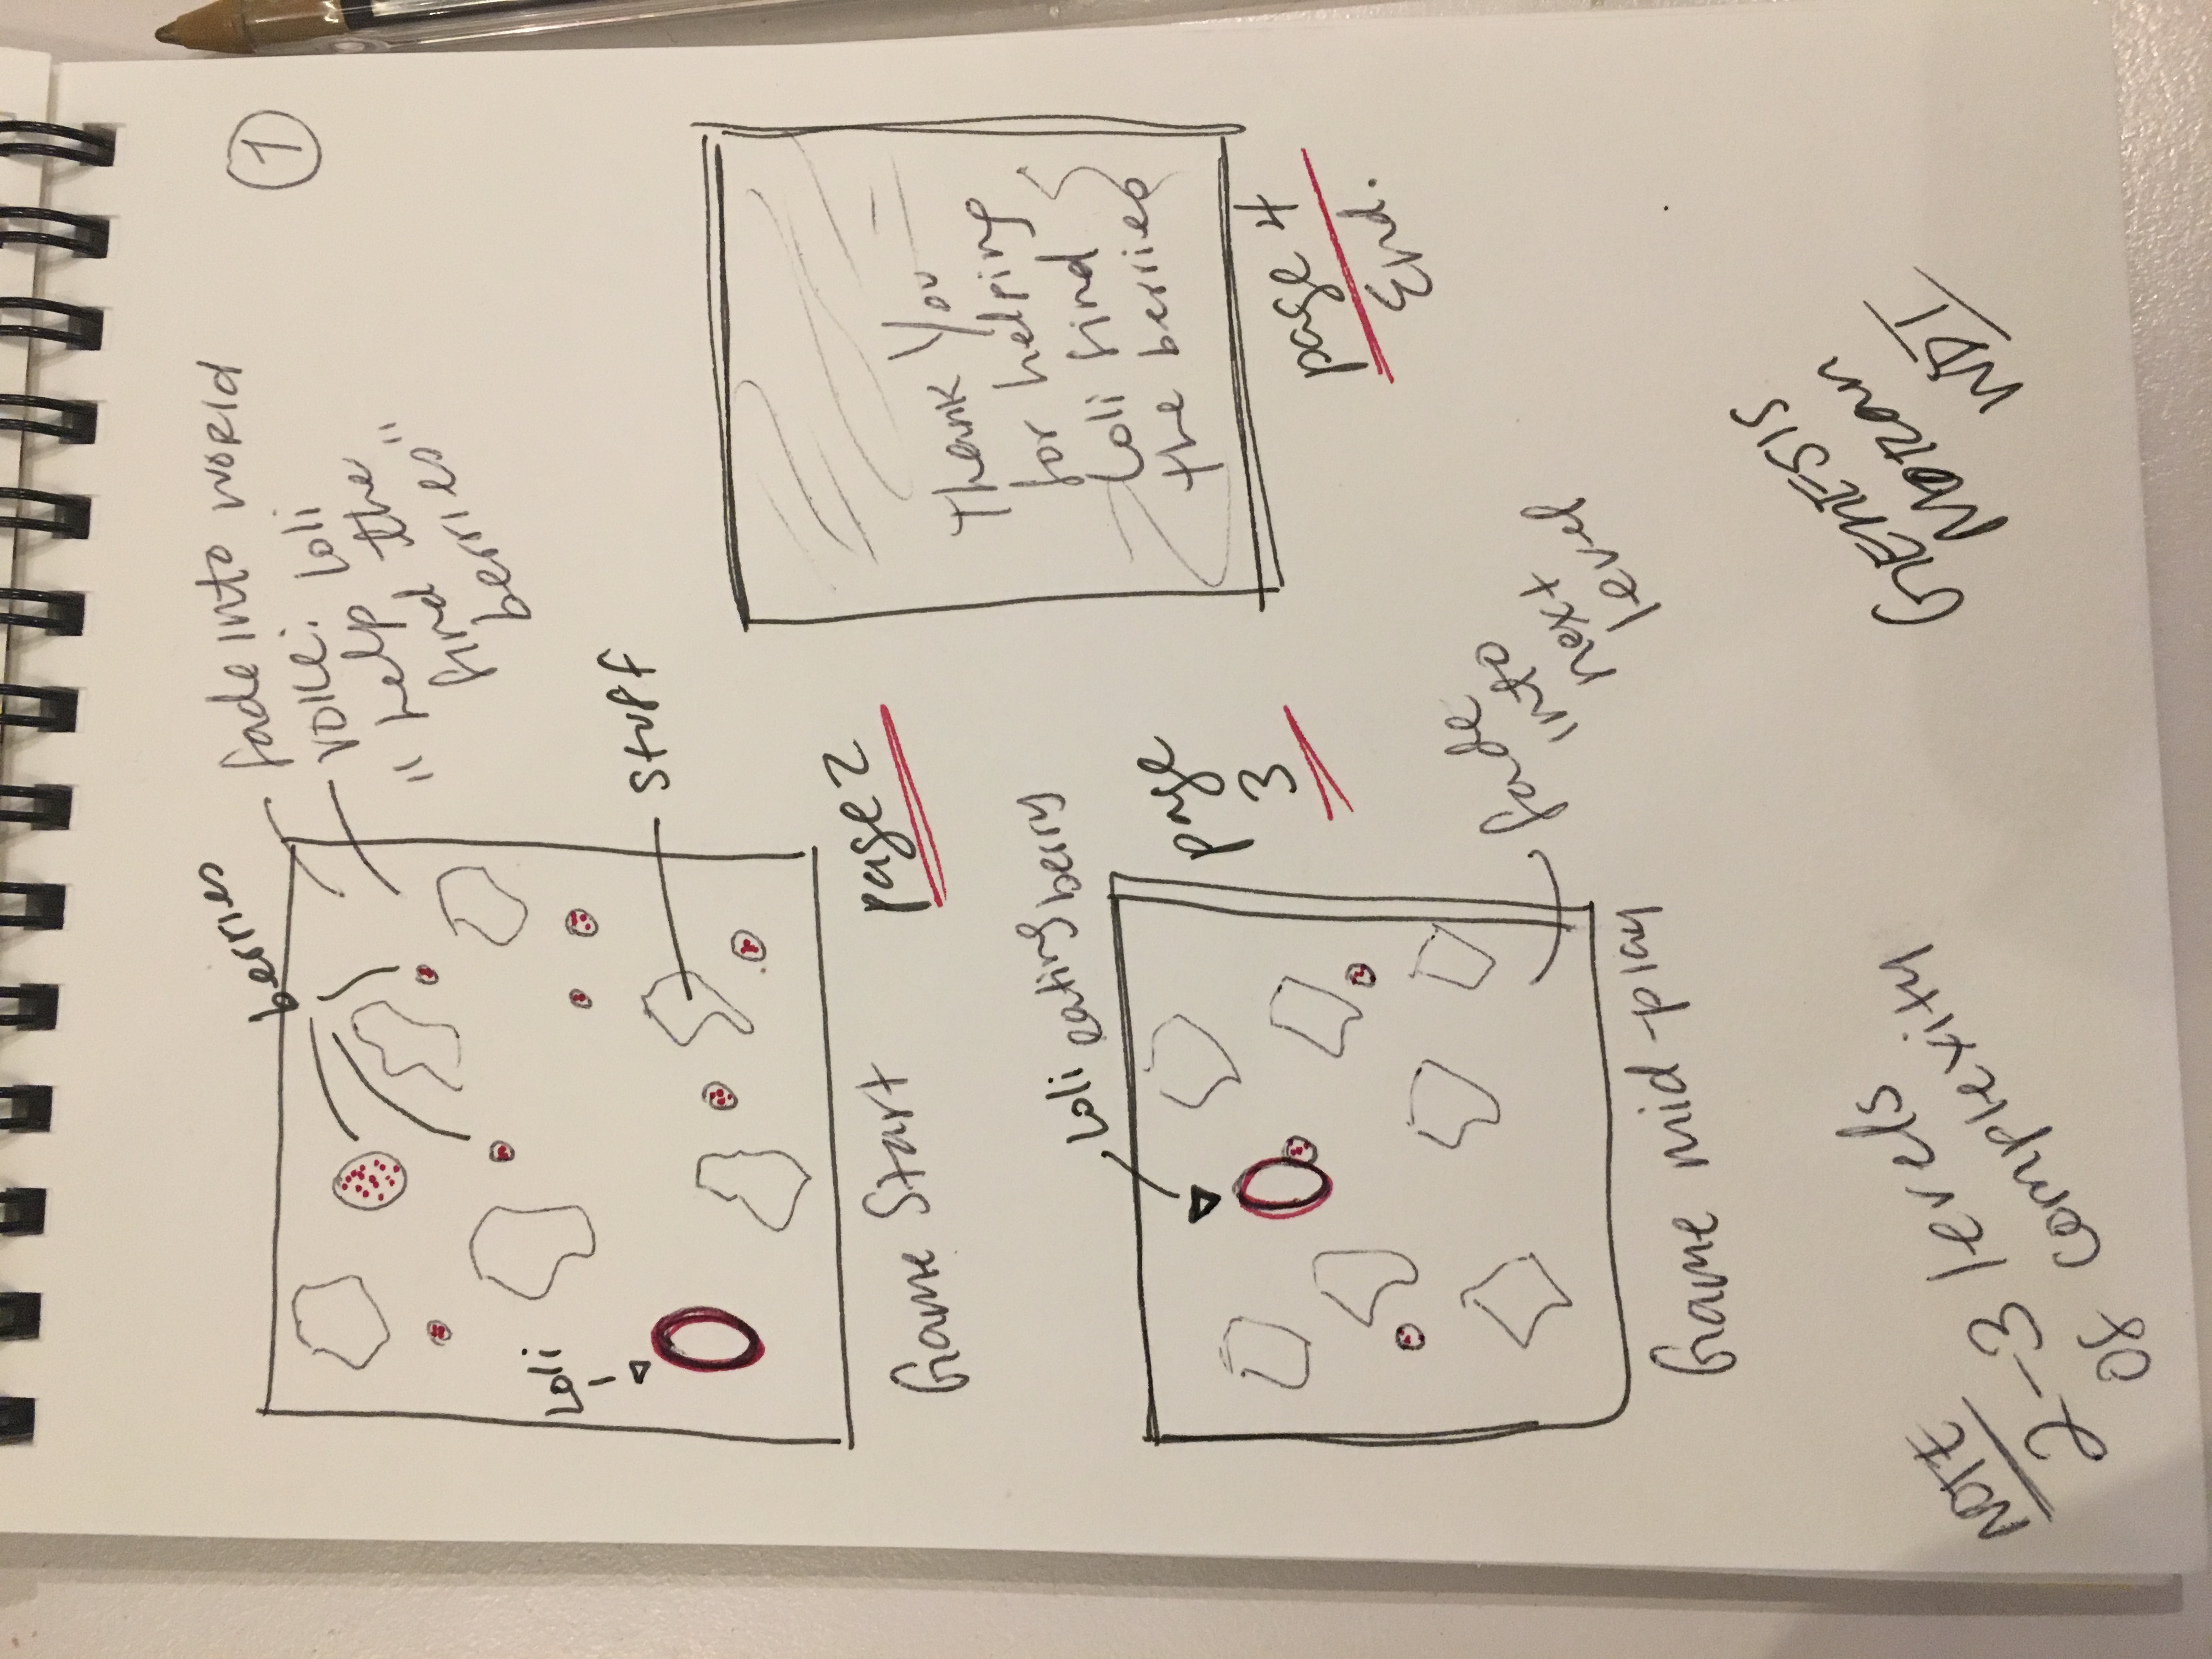 1
berries
fade into world
voice:
"help Loli
find the
berries"
Loli
stuff
Game Start
page 2
Loli eating berry
page
3
fade
into
next
level
Game mid-play
Thank You
for helping
Loli find
the berries
page 4
End.
NOTE
2-3 levels
of complexity
GENESIS
Moran
WDT